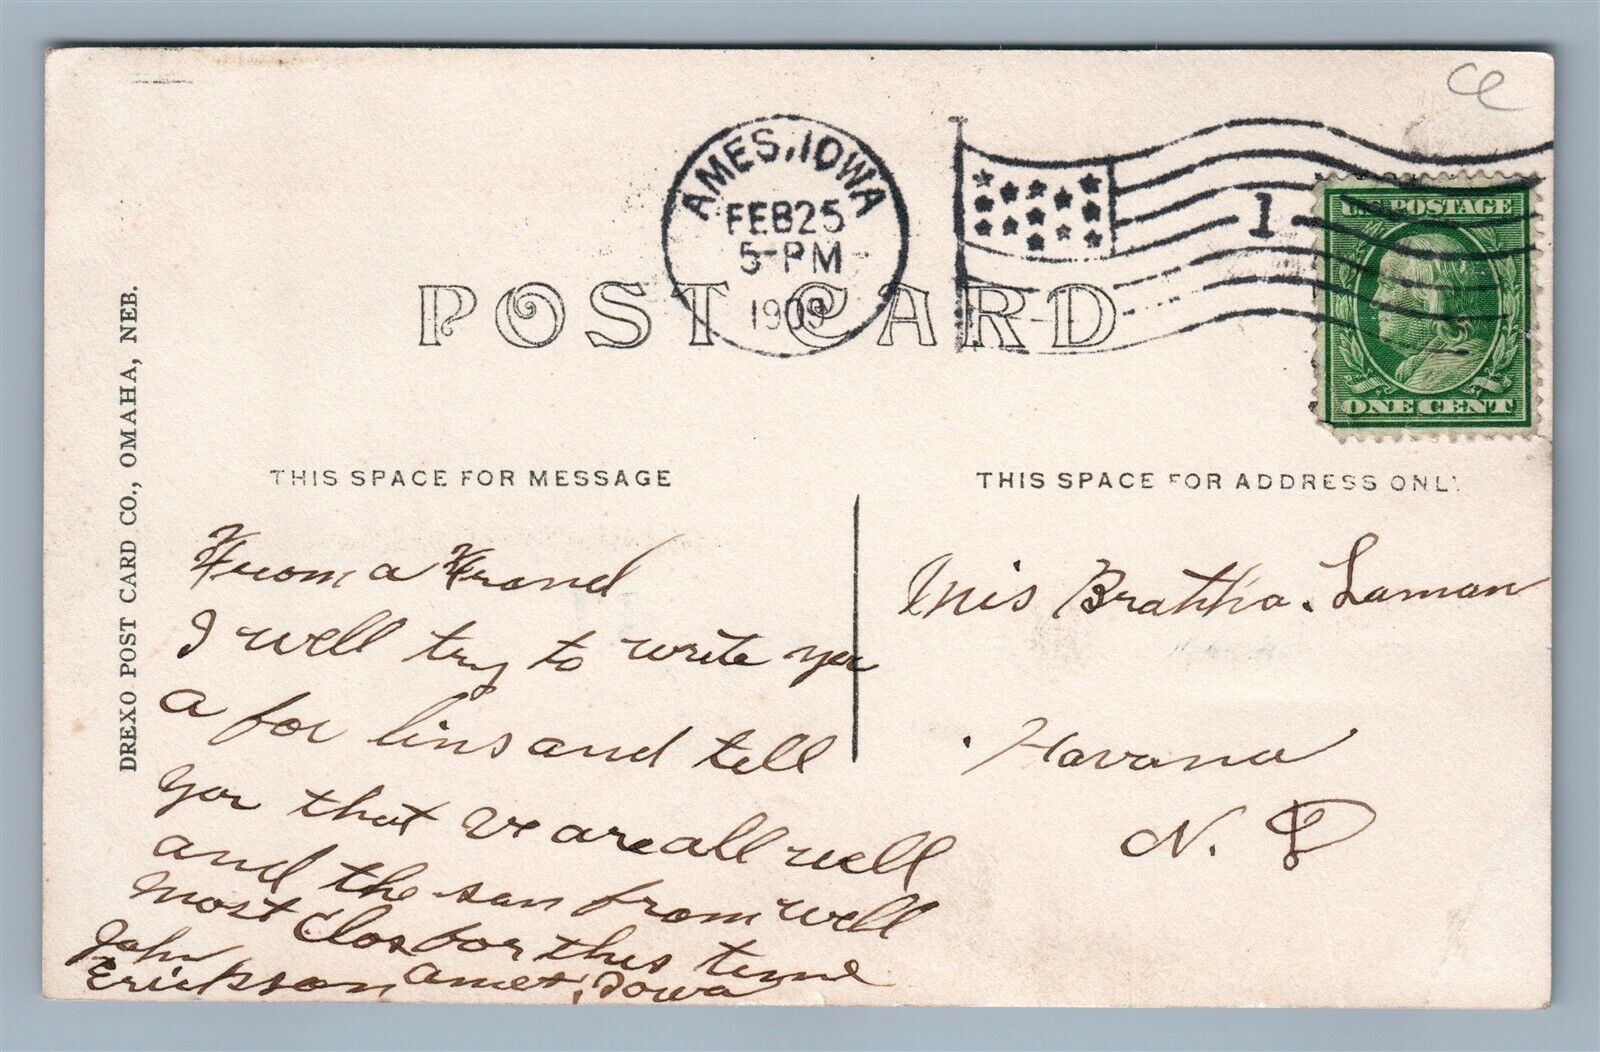 ce
AMES, IOWA
FEB 25
5-PM
1909
1
U.S. POSTAGE
ONE CENT
POST CARD
DREXO POST CARD CO., OMAHA, NEB.
THIS SPACE FOR MESSAGE
THIS SPACE FOR ADDRESS ONLY
From a Frend
I well try to write you
a for lins and tell
you that we are all well
and the san from well
most Clos for this time
John
Erickson Ames, Iowa
Mis Bratha. Laman
Havana
N. D